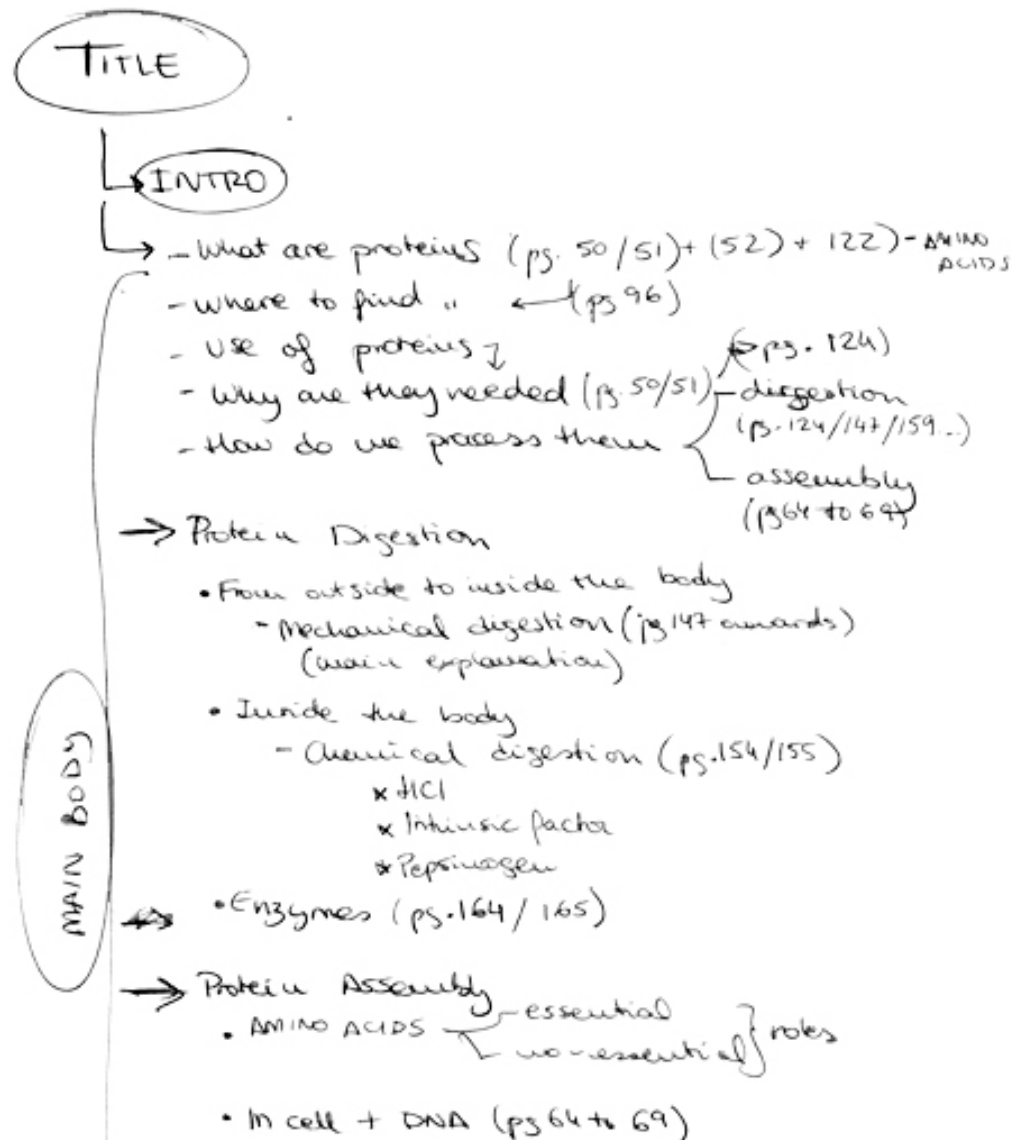 TITLE
INTRO
- What are proteins (pg. 50/51) + (52) + 122) - AMINO ACIDS
- where to find " ← (pg 96)
- Use of proteins
- Why are they needed (pg. 50/51)
- How do we process them
(pg. 124)
- digestion
(pg. 124/147/159..)
- assembly
(pg 64 to 69)
→ Protein Digestion
• From outside to inside the body
- Mechanical digestion (pg 147 onwards)
(main explanation)
• Inside the body
- Chemical digestion (pg. 154/155)
* HCl
* Intrinsic factor
* Pepsinogen
• Enzymes (pg. 164/165)
→ Protein Assembly
• AMINO ACIDS
- essential
- no-essential } roles
• In cell + DNA (pg 64 to 69)
MAIN BODY